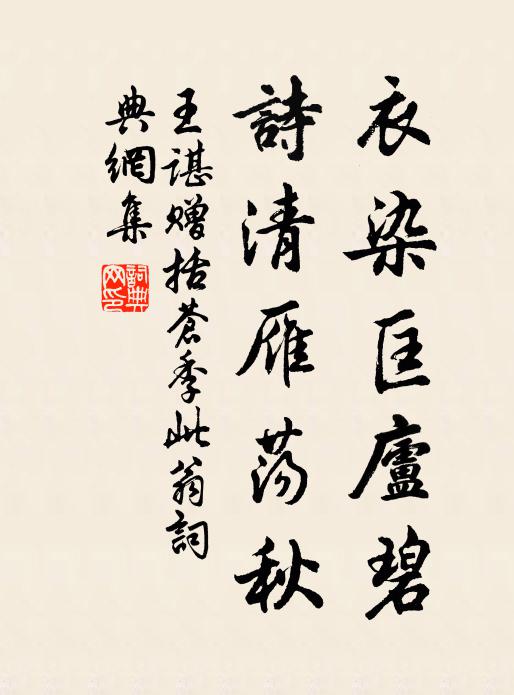 衣染匡廬碧
詩清雁蕩秋
王諶贈括蒼季此翁詞
典網集
詞典网印